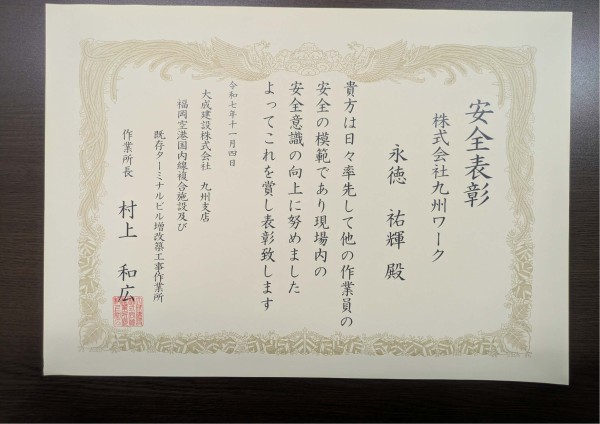 安全表彰
株式会社九州ワーク
永徳 祐輝 殿
貴方は日々率先して他の作業員の
安全の模範であり現場内の
安全意識の向上に努めました
よってこれを賞し表彰致します
令和七年十一月四日
大成建設株式会社 九州支店
福岡空港国内線複合施設及び
既存ターミナルビル増改築工事作業所
作業所長 村上 和広